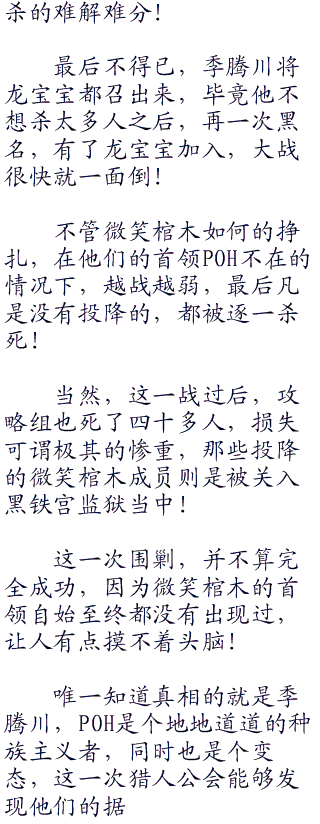 杀的难解难分！
最后不得已，季腾川将
龙宝宝都召出来，毕竟他不
想杀太多人之后，再一次黑
名，有了龙宝宝加入，大战
很快就一面倒！
不管微笑棺木如何的挣
扎，在他们的首领POH不在的
情况下，越战越弱，最后凡
是没有投降的，都被逐一杀
死！
当然，这一战过后，攻
略组也死了四十多人，损失
可谓极其的惨重，那些投降
的微笑棺木成员则是被关入
黑铁宫监狱当中！
这一次围剿，并不算完
全成功，因为微笑棺木的首
领自始至终都没有出现过，
让人有点摸不着头脑！
唯一知道真相的就是季
腾川，POH是个地地道道的种
族主义者，同时也是个变
态，这一次猎人公会能够发
现他们的据